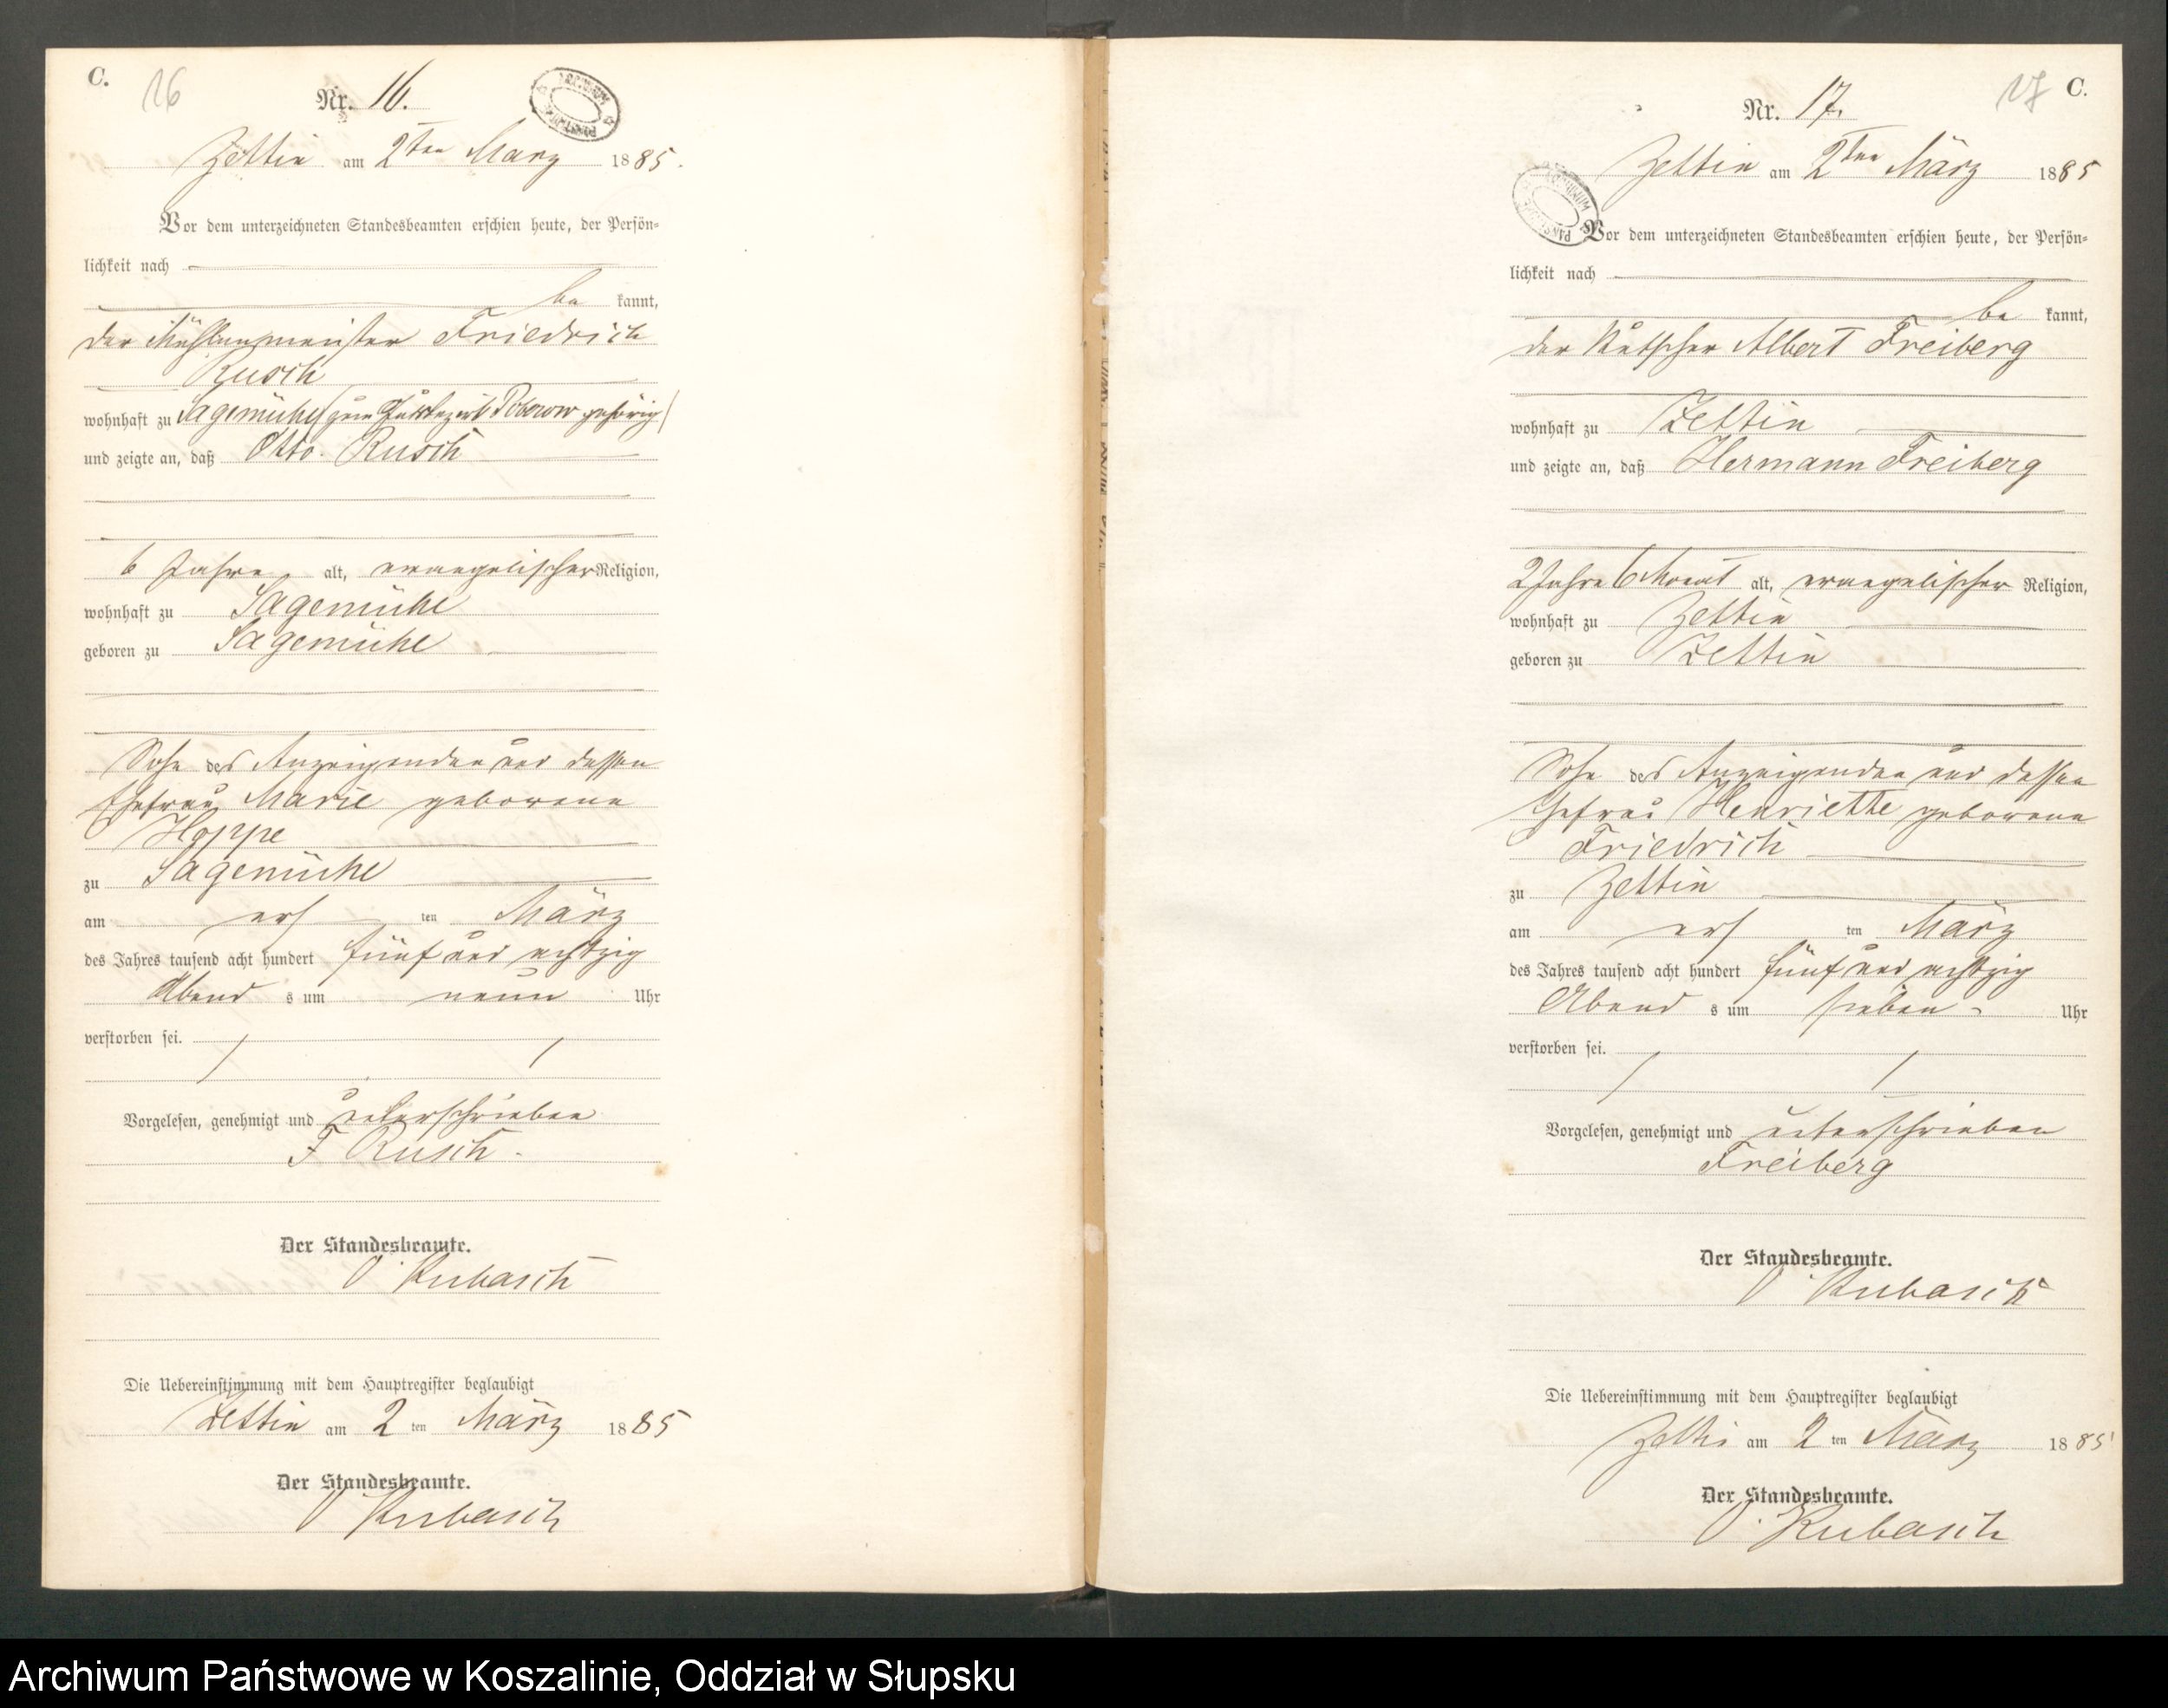 C.
16
Nr. 16.
ARCHIWUM PAŃSTWOWE
Zettin am 2ten März 1885.
Vor dem unterzeichneten Standesbeamten erschien heute, der Persön-
lichkeit nach
be kannt,
der Mühlenmeister Friedrich
Rusch
wohnhaft zu Sagemühl (zum Gutsbezirk Poberow gehörig)
und zeigte an, daß Otto Rusch
6 Jahre alt, evangelischer Religion,
wohnhaft zu Sagemühl
geboren zu Sagemühl
Sohn des Anzeigenden und dessen
Ehefrau Marie geborene
Hoppe
zu Sagemühl
am ers ten März
des Jahres tausend acht hundert fünf und achtzig
Abend s um neun Uhr
verstorben sei.
Vorgelesen, genehmigt und unterschrieben
F Rusch.
Der Standesbeamte.
Kubasch
Die Uebereinstimmung mit dem Hauptregister beglaubigt
Zettin am 2 ten März 1885
Der Standesbeamte.
Kubasch
17 C.
Nr. 17.
Zettin am 2ten März 1885
ARCHIWUM PAŃSTWOWE
Vor dem unterzeichneten Standesbeamten erschien heute, der Persön-
lichkeit nach
be kannt,
der Kutscher Albert Freiberg
wohnhaft zu Zettin
und zeigte an, daß Hermann Freiberg
2 Jahre 6 Monat alt, evangelischer Religion,
wohnhaft zu Zettin
geboren zu Zettin
Sohn des Anzeigenden und dessen
Ehefrau Henriette geborene
Friedrich
zu Zettin
am ers ten März
des Jahres tausend acht hundert fünf und achtzig
Abend s um sieben Uhr
verstorben sei.
Vorgelesen, genehmigt und unterschrieben
Freiberg
Der Standesbeamte.
Kubasch
Die Uebereinstimmung mit dem Hauptregister beglaubigt
Zettin am 2 ten März 1885
Der Standesbeamte.
Kubasch
Archiwum Państwowe w Koszalinie, Oddział w Słupsku